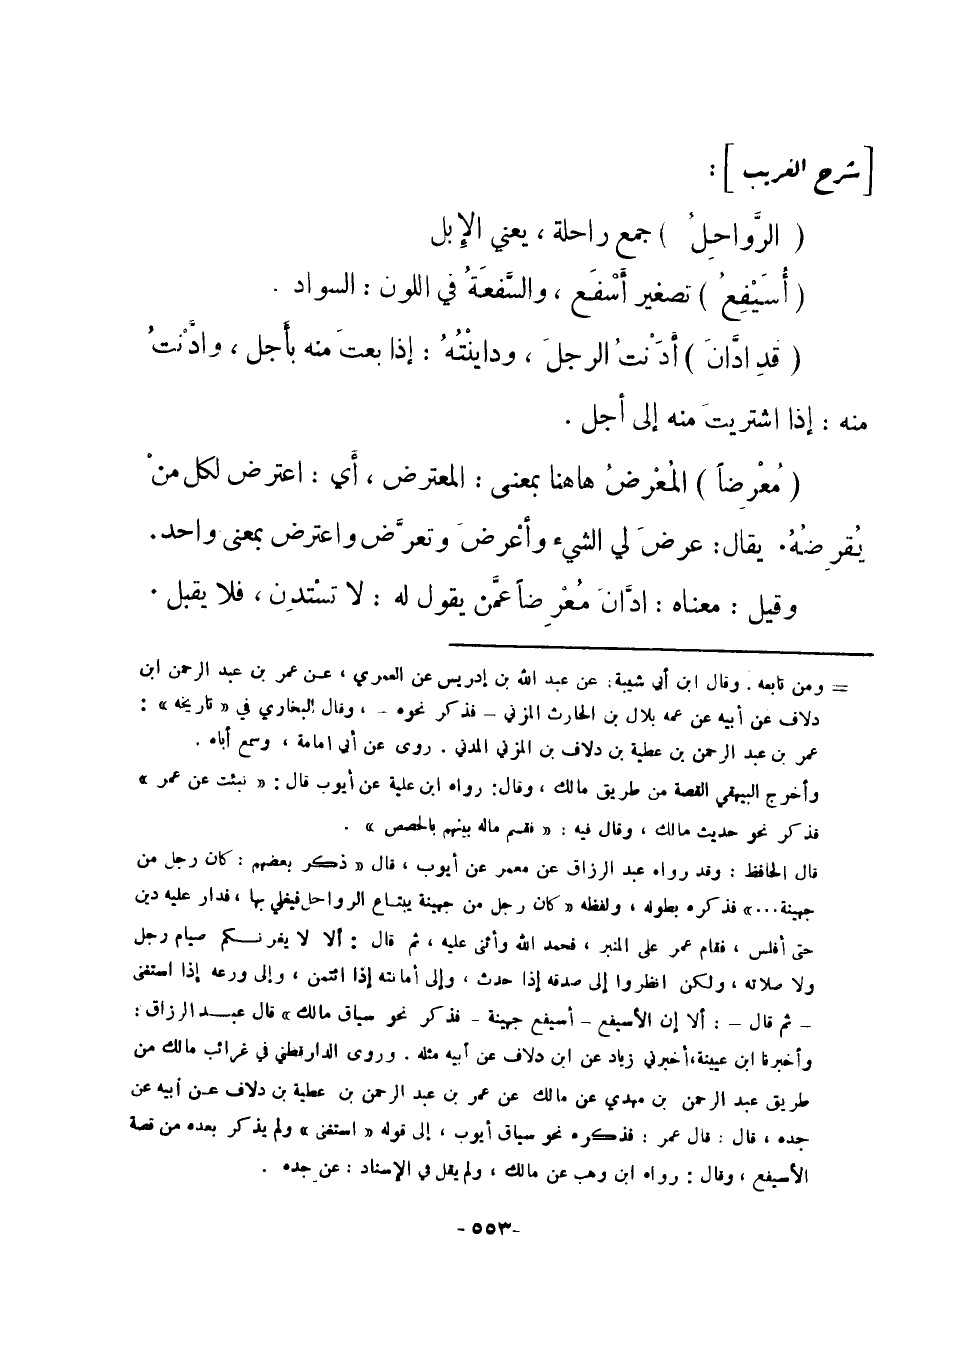 [ شرح الغريب ] :
( الرَّواحِلُ ) جمع راحلة ، يعني الإبل
( أُسَيْفِعُ ) تصغير أَسْفَع ، والسَّفعَةُ في اللون : السواد .
( قَدِ ادَّانَ ) أَدَنْتُ الرجلَ ، وداينْتُهُ : إذا بعتَ منه بأَجل ، وادَّنْتُ
منه : إذا اشتريتَ منه إلى أجل .
( مُعْرِضاً ) المُعْرِضُ هاهنا بمعنى : المعترض ، أَي : اعترض لكل منْ
يُقرِضُهُ . يقال : عرضَ لي الشيء وأَعْرضَ وتعرَّض واعترض بمعنى واحد .
وقيل : معناه : ادَّانَ مُعْرِضاً عمَّن يقول له : لا تسْتدِن ، فلا يقبل .
= ومن تابعه . وقال ابن أبي شيبة : عن عبد الله بن إدريس عن العمري ، عن عمر بن عبد الرحمن ابن
دلاف عن أبيه عن عمه بلال بن الحارث المزني - فذكر نحوه - ، وقال البخاري في « تاريخه » :
عمر بن عبد الرحمن بن عطية بن دلاف بن المزني المدني . روى عن أبي امامة ، وسمع أباه .
وأخرج البيهقي القصة من طريق مالك ، وقال : رواه ابن علية عن أيوب قال : « نبئت عن عمر »
فذكر نحو حديث مالك ، وقال فيه : « فقسم ماله بينهم بالحصص » .
قال الحافظ : وقد رواه عبد الرزاق عن معمر عن أيوب ، قال « ذكر بعضهم : كان رجل من
جهينة ...» فذكره بطوله ، ولفظه « كان رجل من جهينة يبتاع الرواحل فيغلي بها ، فدار عليه دين
حتى أفلس ، فقام عمر على المنبر ، فحمد الله وأثنى عليه ، ثم قال : ألا لا يغرنكم صيام رجل
ولا صلاته ، ولكن انظروا إلى صدقه إذا حدث ، وإلى أمانته إذا ائتمن ، وإلى ورعه إذا استغنى
- ثم قال - : ألا إن الأسيفع - أسيفع جهينة - فذكر نحو سياق مالك » قال عبد الرزاق :
وأخبرنا ابن عيينة ،أخبرني زياد عن ابن دلاف عن أبيه مثله . وروى الدارقطني في غرائب مالك من
طريق عبد الرحمن بن مهدي عن مالك عن عمر بن عبد الرحمن بن عطية بن دلاف عن أبيه عن
جده ، قال : قال عمر : فذكره نحو سياق أيوب ، إلى قوله « استغنى » ولم يذكر بعده من قصة
الأسيفع ، وقال : رواه ابن وهب عن مالك ، ولم يقل في الإسناد : عن جده .
- ٥٥٣ -